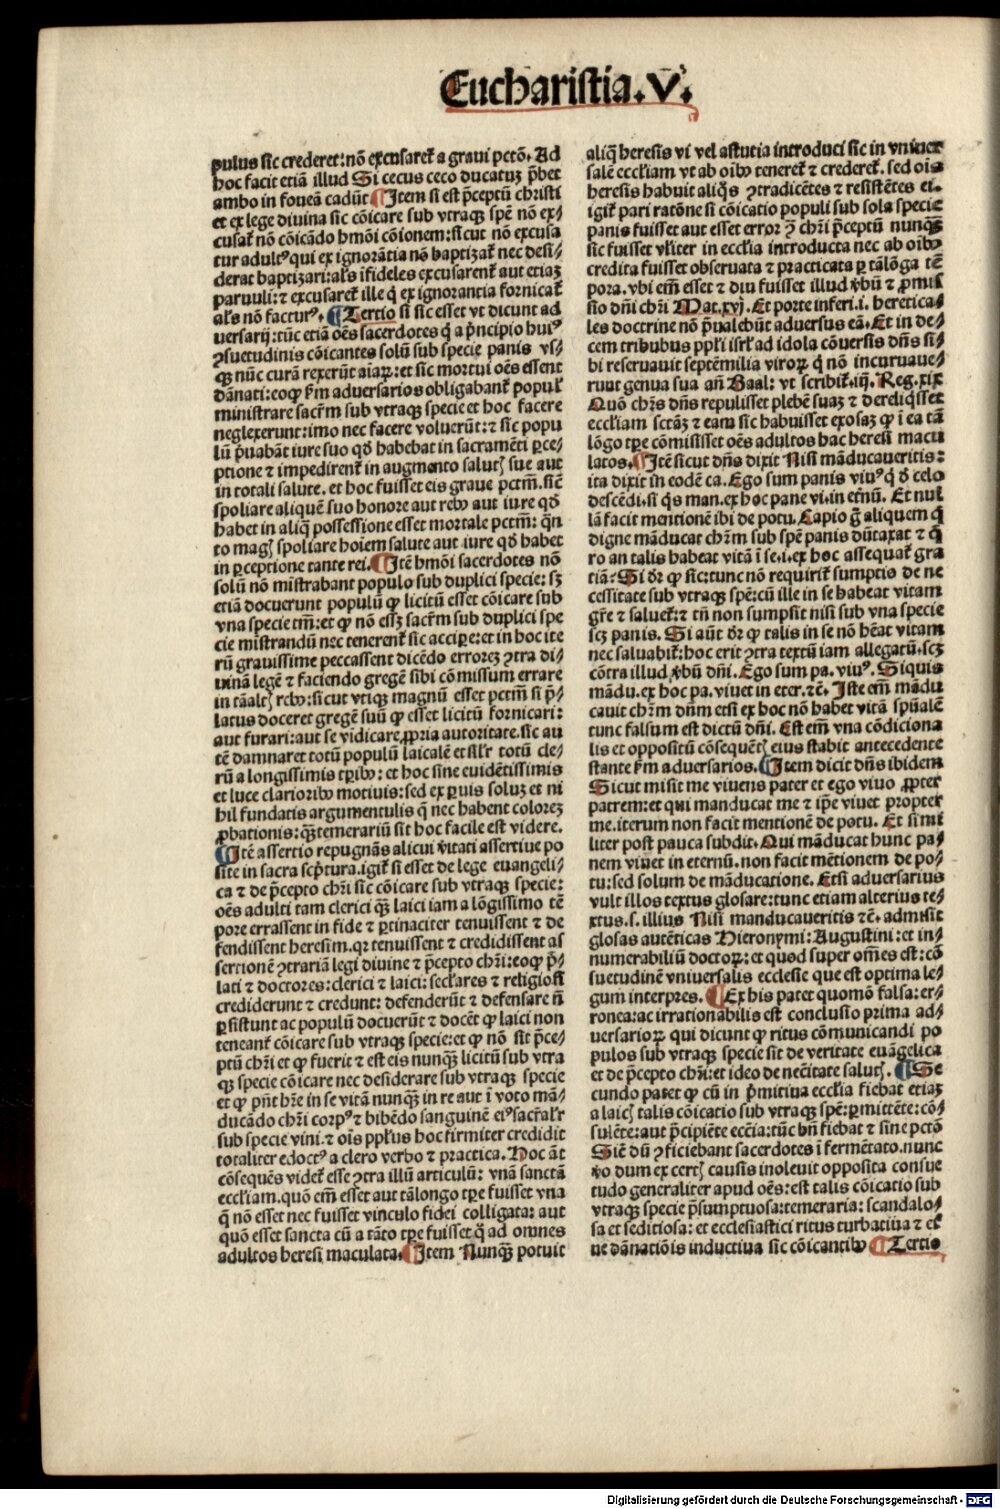 Eucharistia. V.
pulus sic crederet: nõ excusaret̃ a graui pctõ. Ad
hoc facit etiã illud Si cecus ceco ducatuʒ p̃bet
ambo in foueã cadũt ¶ Item si est p̃ceptũ christi
et ex lege diuina sic cõicare sub vtraqʒ spẽ nõ ex⸗
cusat̃ nõ cõicãdo hmõi cõionem: sicut nõ excusa
tur adultꝰ qui ex ignorãtia nõ baptizat̃ nec desi⸗
derat baptizari: al̃s ĩfideles excusarent̃ aut etiaʒ
paruuli: ⁊ excusaret̃ ille q̃ ex ignorantia fornicat̃
al̃s nõ facturꝰ. ¶ Tertio si sic esset vt dicunt ad
uersarij: tũc etiã oẽs sacerdotes q̃ a p̃ncipio huiꝰ
ꝯsuetudinis cõicantes solũ sub specie panis vs⸗
qʒ nũc curã rexerũt aĩaꝝ: et sic mortui oẽs essent
dãnati: eo ꝙ ẽm aduersarios obligabant̃ popul̃
ministrare sacr̃m sub vtraqʒ specie et hoc facere
neglexerunt: imo nec facere voluerũt: ⁊ sic popu
lũ p̃uabãt iure suo qď habebat in sacramẽti ꝑce⸗
ptione ⁊ impedirent̃ in augmento salutꝭ sue aut
in totali salute. et hoc fuisset eis graue pctm̃. siẽ
spoliare aliquẽ suo honore aut rebꝰ aut iure qď
habet in aliq̃ possessione esset mortale pctm̃: q̃n
to magꝭ spoliare hoĩem salute aut iure qď habet
in ꝑceptione tante rei. ¶ Itẽ hmõi sacerdotes nõ
solũ nõ mĩstrabant populo sub duplici specie: sʒ
etiã docuerunt populũ ꝙ licitũ esset cõicare sub
vna specie tm̃: et ꝙ nõ essʒ sacr̃m sub duplici spe
cie mĩstrandũ nec tenerent̃ sic accipe: et in hoc ite
rũ grauissime peccassent dicẽdo erroreʒ ꝯtra di⸗
uinã legẽ ⁊ faciendo gregẽ sibi cõmissum errare
in tãaltꝭ rebꝰ: sicut vtiqʒ magnũ esset pctm̃ si p̃⸗
latus doceret gregẽ suũ ꝙ esset licitũ fornicari:
aut furari: aut se vĩdicare ꝓpria autoritate. sic au
tẽ damnaret totũ populũ laicalẽ et sil̃r totũ cle⸗
rũ a longissimis tꝑibꝰ: et hoc sine euidẽtissimis
et luce clarioribꝰ motiuis: sed ex ꝑuis soluʒ et ni
hil fundatis argumentulis q̃ nec habent coloreʒ
ꝓbationis: q̃ʒ temerariũ sit hoc facile est videre.
¶ Itẽ assertio repugnãs alicui ṽitati assertiue po
site in sacra scp̃tura. igit̃ si esset de lege euangeli⸗
ca ⁊ de p̃cepto chr̃i sic cõicare sub vtraqʒ specie:
oẽs adulti tam clerici q̃ʒ laici iam a lõgissimo tẽ
pore errassent in fide ⁊ ꝑtinaciter tenuissent ⁊ de
fendissent heresim. qꝛ tenuissent ⁊ credidissent as
sertionẽ ꝯtrariã legi diuine ⁊ p̃cepto chr̃i: eo ꝙ p̃⸗
lati ⁊ doctores: clerici ⁊ laici: secl̃ares ⁊ religiosi
crediderunt ⁊ credunt: defenderũt ⁊ defensare ñ
ꝑsistunt ac populũ docuerũt ⁊ docẽt ꝙ laici non
teneant̃ cõicare sub vtraqʒ specie: et ꝙ nõ sit p̃ce⸗
ptũ chr̃i et ꝙ fuerit ⁊ est eis nunq̃ʒ licitũ sub vtra
qʒ specie cõicare nec desiderare sub vtraqʒ specie
et ꝙ pñt hr̃e in se vitã nunq̃ʒ in re aut ĩ voto mã⸗
ducãdo chr̃i corpꝰ ⁊ bibẽdo sanguinẽ eiꝰ sacr̃al̃r
sub specie vini. ⁊ oĩs ppl̃us hoc firmiter credidit
totaliter edoctꝰ a clero verbo ⁊ practica. Hoc aũt
cõsequẽs videt̃ esse ꝯtra illũ articulũ: vnã sanctã
eccl̃iam. quõ em̃ esset aut tãlongo tꝑe fuisset vna
q̃ nõ esset nec fuisset vinculo fidei colligata: aut
quõ esset sancta cũ a tãto tꝑe fuisset q̃ ad omnes
adultos heresi maculata. ¶ Item Nunq̃ʒ potuit
aliq̃ heresis vi vel astutia introduci sic in vniuer
salẽ eccl̃iam vt ab oĩbꝰ teneret̃ ⁊ crederet̃. sed oĩa
heresis habuit aliq̃s ꝯtradicẽtes ⁊ resistẽtes ei.
igit̃ pari ratõne si cõicatio populi sub sola specie
panis fuisset aut esset error ꝯ̃ chr̃i p̃ceptũ nunq̃ʒ
sic fuisset vl̃iter in eccl̃ia introducta nec ab oĩbꝰ
credita fuisset obseruata ⁊ practicata ꝑ tãlõga tẽ
pora. vbi em̃ esset ⁊ diu fuisset illud ṽbũ ⁊ ꝓmis
sio dñi chr̃i Mat. xvj. Et porte inferi. i. heretica⸗
les doctrine nõ p̃ualebũt aduersus eã. Et in de⸗
cem tribubus ppl̃i isrl̃ ad idola cõuersis dñs si⸗
bi reseruauit septẽmilia viroꝝ q̃ nõ incuruaue⸗
runt genua sua añ Baal: vt scribit̃. iij. Reg. xix
Quõ chr̃s dñs repulisset plebẽ suaʒ ⁊ dereliq̃sset
eccl̃iam sctãʒ ⁊ eam sic habuisset exosaʒ ꝙ ĩ ea tã
lõgo tꝑe cõmisisset oẽs adultos hac heresi macu
latos. ¶ Itẽ sicut dñs dixit Nisi mãducaueritis:
ita dixit in eodẽ ca. Ego sum panis viuꝰ q̃ ď celo
descẽdi. si q̃s man. ex hoc pane vi. in etr̃nũ. Et nul
lã facit mentionẽ ibi de potu. Capio g̃ aliquem q̃
digne mãducat chr̃m sub spẽ panis dũtaxat ⁊ q̃
ro an talis habeat vitã ĩ se. i. ex hoc assequat̃ gra
tiã: Si ďr ꝙ sic: tunc nõ requirit̃ sumptio de ne
cessitate sub vtraqʒ spẽ: cũ ille in se habeat vitam
gr̃e ⁊ saluet̃: ⁊ tñ non sumpsit nisi sub vna specie
scʒ panis. Si aũt ďr ꝙ talis in se nõ hẽat vitam
nec saluabit̃: hoc erit ꝯtra textũ iam allegatũ. scʒ
cõtra illud ṽbũ dñi. Ego sum pa. viuꝰ. Siquis
mãdu. ex hoc pa. viuet in eter. ⁊c̃. Iste em̃ mãdu
cauit chr̃m dñm etsi ex hoc nõ habet vitã spũalẽ
tunc falsum est dictũ dñi. Est em̃ vna cõdiciona
lis et oppositũ cõsequẽtꝭ eius stabit antecedente
stante ẽm aduersarios. ¶ Item dicit dñs ibidem
Sicut misit me viuens pater et ego viuo ꝓpter
patrem: et qui manducat me ⁊ ip̃e viuet propter
me. iterum non facit mentionẽ de potu. Et simi
liter post pauca subdit. Qui mãducat hunc pa⸗
nem viuet in eternũ. non facit mẽtionem de po⸗
tu: sed solum de mãducatione. Etsi aduersarius
vult illos textus glosare: tunc etiam alterius te⸗
xtus. s. illius Nisi manducaueritis ⁊c̃. admisit
glosas autẽticas Hieronymi: Augustini: et in⸗
numerabiliũ doctoꝝ: et quod super om̃es est: cõ
suetudinẽ vniuersalis ecclesie que est optima le⸗
gum interpres. ¶ Ex his patet quomõ falsa: er⸗
ronea: ac irrationabilis est conclusio prima ad⸗
uersarioꝝ qui dicunt ꝙ ritus cõmunicandi po
pulos sub vtraqʒ specie sit de veritate euãgelica
et de p̃cepto chr̃i: et ideo de nec̃itate salutꝭ. ¶ Se
cundo patet ꝙ cũ in p̃mitiua eccl̃ia fiebat etiaʒ
a laicꝭ talis cõicatio sub vtraqʒ spẽ: ꝑmittẽte: cõ⸗
sulẽte: aut p̃cipiẽte eccẽia: tũc bñ fiebat ⁊ sine pctõ
Siẽ dũ ꝯficiebant sacerdotes ĩ fermẽtato. nunc
ṽo dum ex certꝭ causis inoleuit opposita consue
tudo generaliter apud oẽs: est talis cõicatio sub
vtraqʒ specie p̃sumptuosa: temeraria: scandalo⸗
sa et seditiosa: et ecclesiastici ritus turbatiua ⁊ et̃
ne dãnatiõis inductiua sic cõicantibꝰ ¶ Tertio
Digitalisierung gefördert durch die Deutsche Forschungsgemeinschaft - DFG